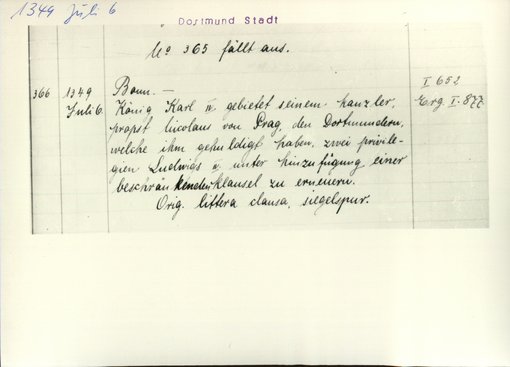 1349 Juli 6
Dortmund Stadt
No 365 fällt aus.
366 1349 Bonn. — I 652
Juli 6. König Karl IV gebietet seinem kanzler, Erg I. 877
propst Nicolaus von Prag, den Dortmundern,
welche ihm gehuldigt haben, zwei privile-
gien Ludwigs IV unter hinzufügung einer
beschränkenden klausel zu erneuern.
Orig. littera clausa, siegelspur.